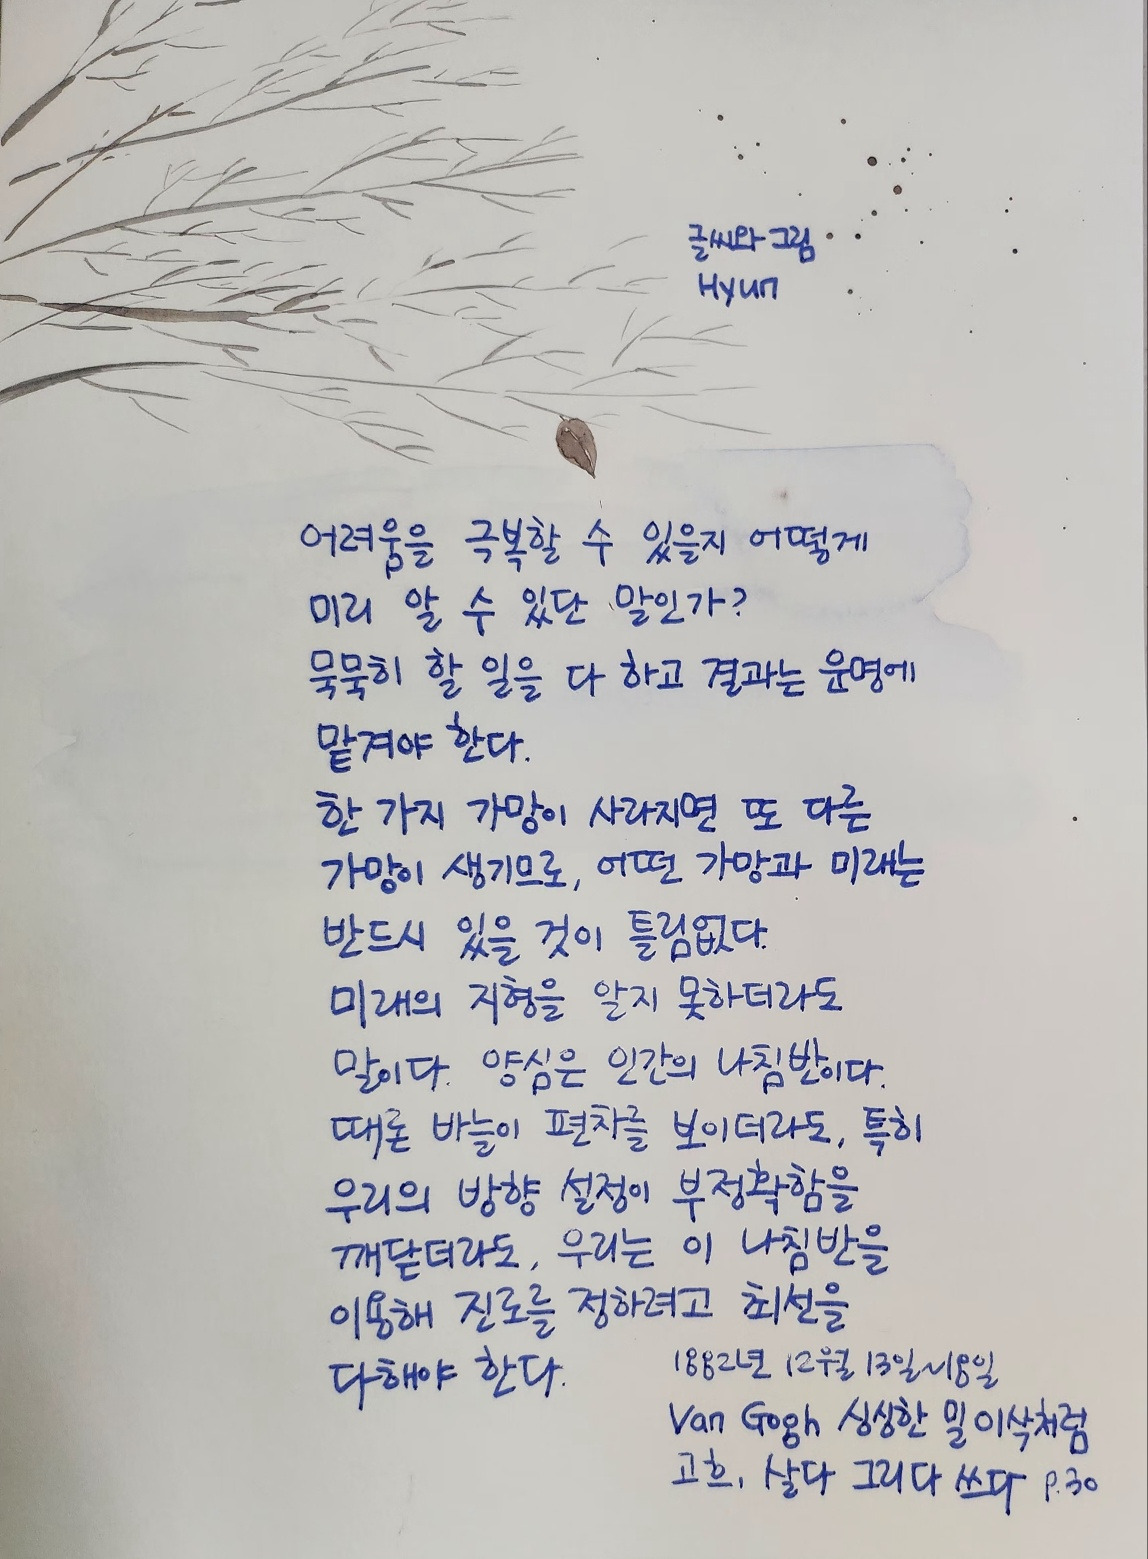 글씨와 그림
Hyun
어려움을 극복할 수 있을지 어떻게
미리 알 수 있단 말인가?
묵묵히 할 일을 다 하고 결과는 운명에
맡겨야 한다.
한 가지 가망이 사라지면 또 다른
가망이 생기므로, 어떤 가망과 미래는
반드시 있을 것이 틀림없다.
미래의 지형을 알지 못하더라도
말이다. 양심은 인간의 나침반이다.
때론 바늘이 편차를 보이더라도, 특히
우리의 방향 설정이 부정확함을
깨닫더라도, 우리는 이 나침반을
이용해 진로를 정하려고 최선을
다해야 한다.
1882년 12월 13일~18일
Van Gogh 싱싱한 밀 이삭처럼
고흐, 살다 그리다 쓰다 p.30